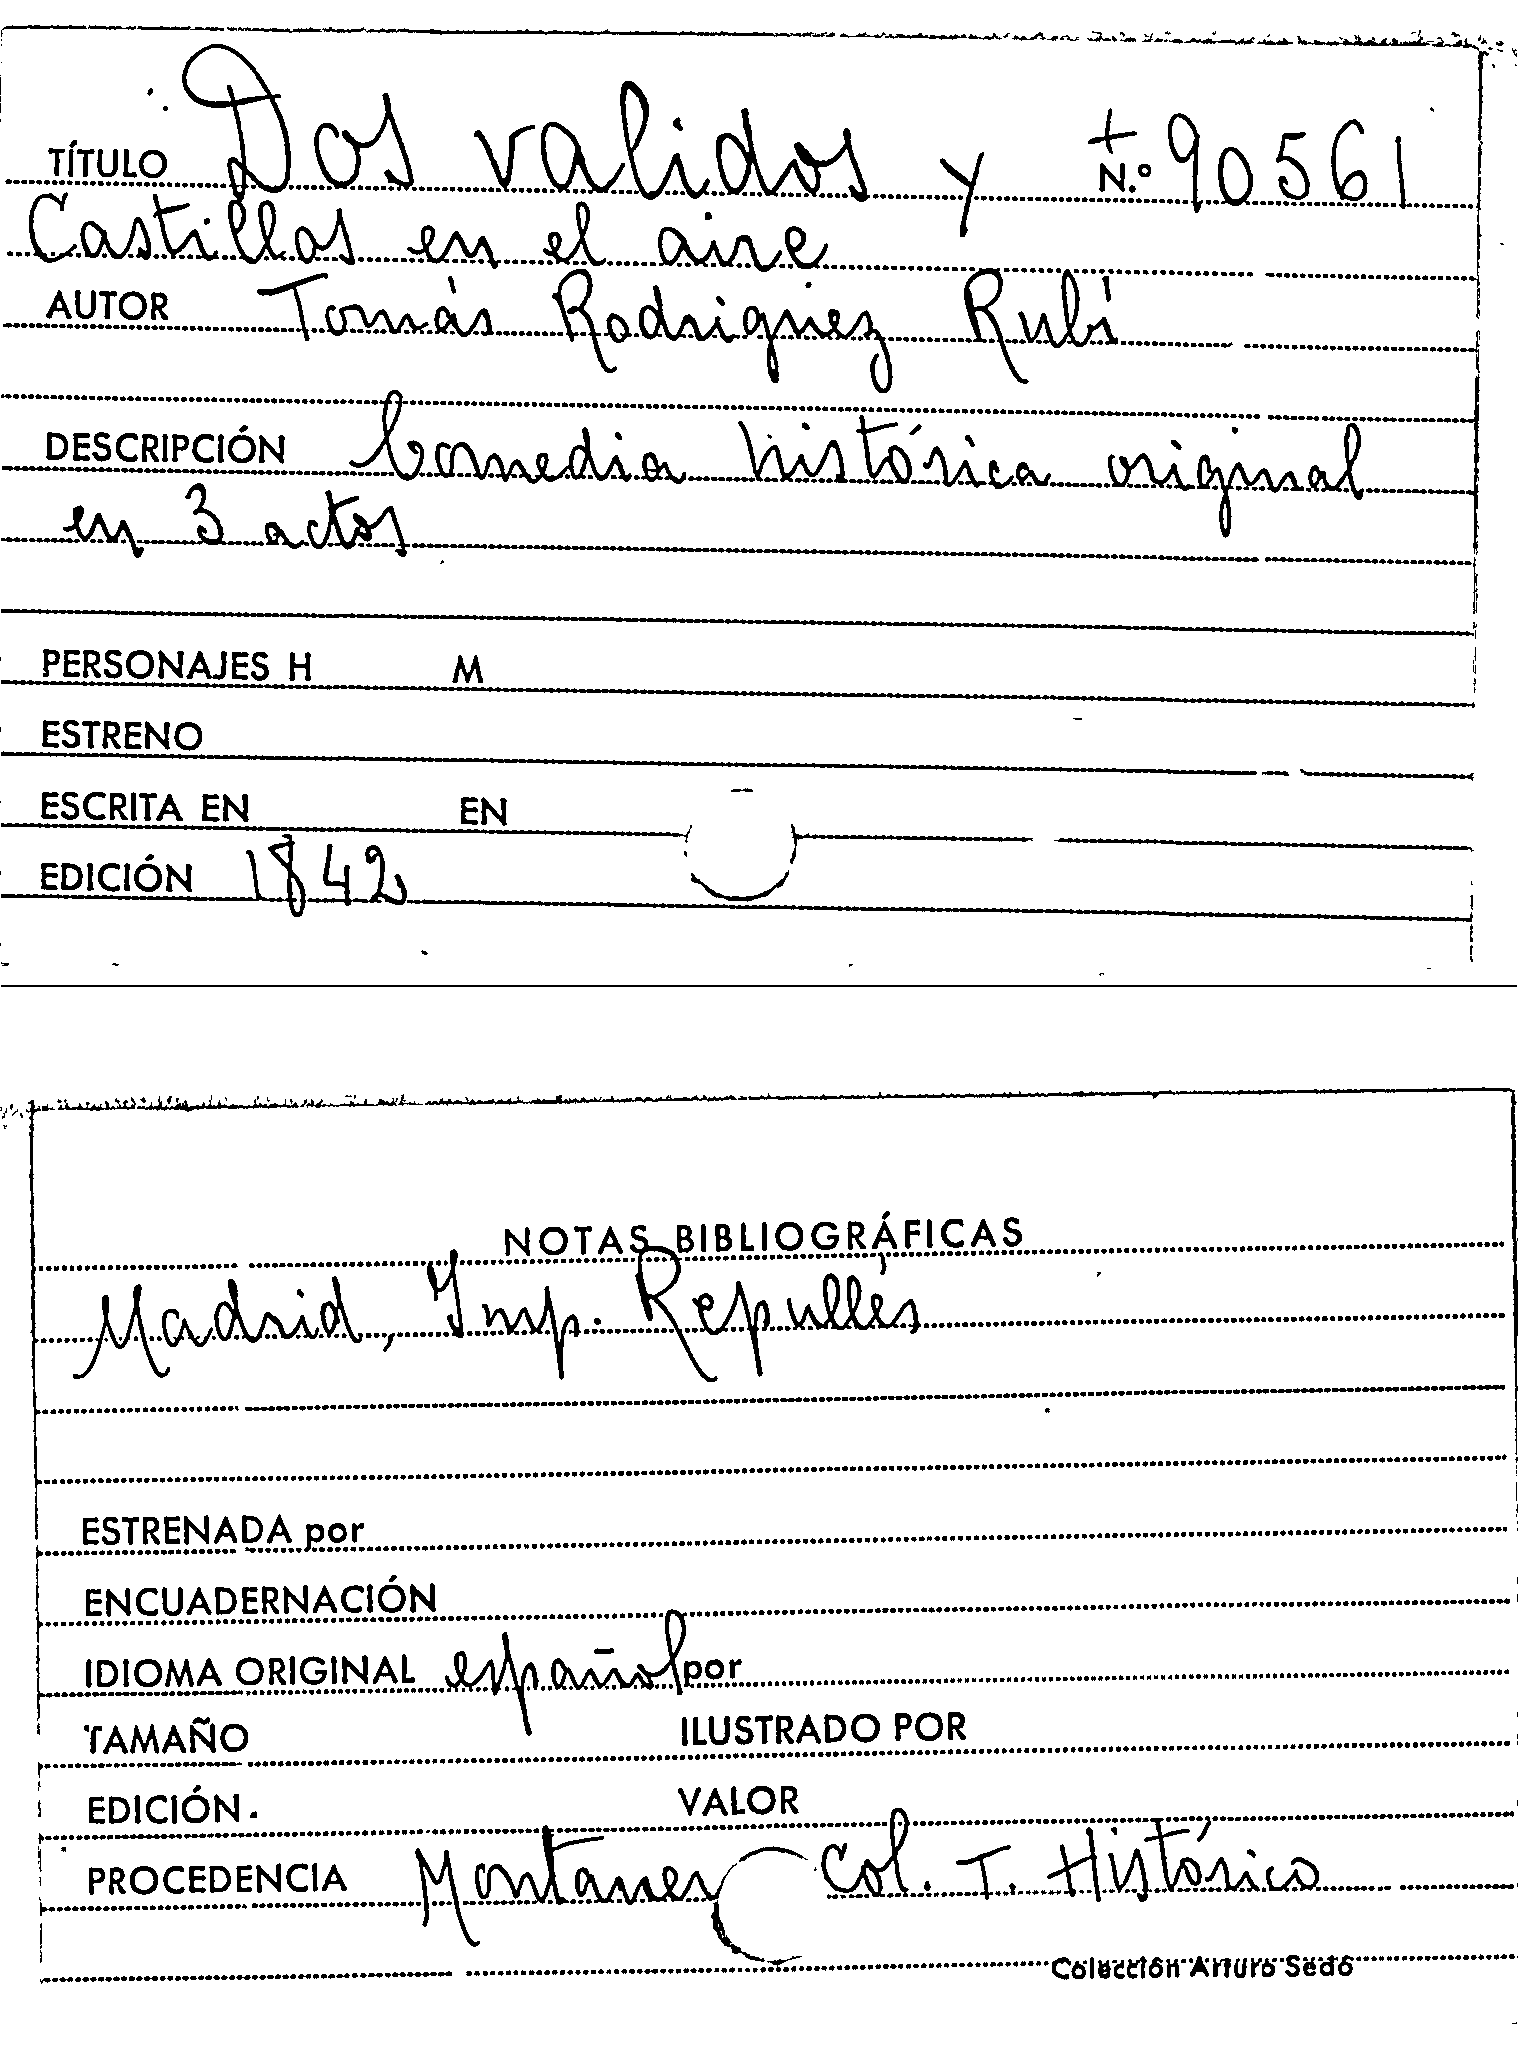 TÍTULO Dos validos y + N.º 90561
Castillos en el aire
AUTOR Tomás Rodriguez Rubí
DESCRIPCIÓN Comedia histórica original
en 3 actos
PERSONAJES H M
ESTRENO
ESCRITA EN EN
EDICIÓN 1842
NOTAS BIBLIOGRÁFICAS
Madrid, Imp. Repullés
ESTRENADA por
ENCUADERNACIÓN
IDIOMA ORIGINAL español por
TAMAÑO ILUSTRADO POR
EDICIÓN. VALOR
PROCEDENCIA Montaner Col. T. Histórico
Colección Arturo Sedó